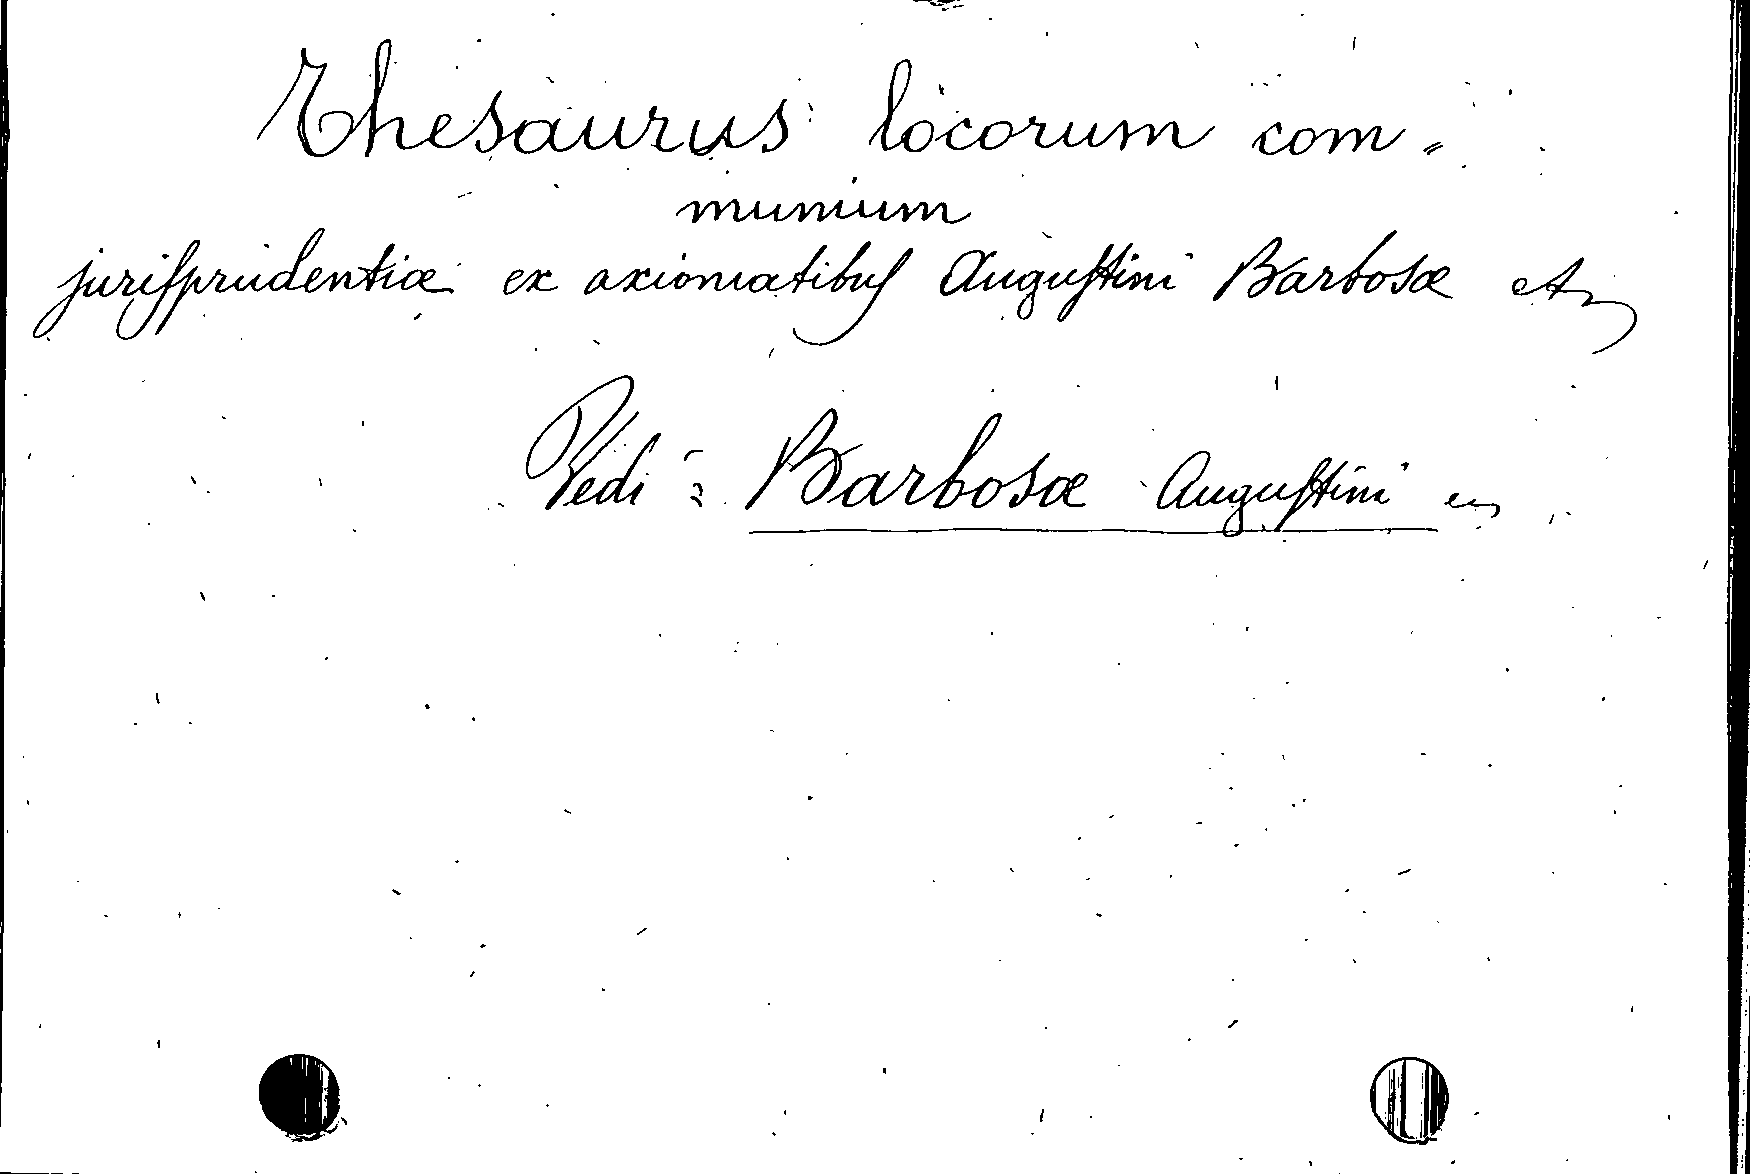 Thesaurus locorum com=
munium
juriſprudentiæ ex axiomatibuſ Auguſtini Barbosæ et
Vedi: Barbosæ Auguſtini